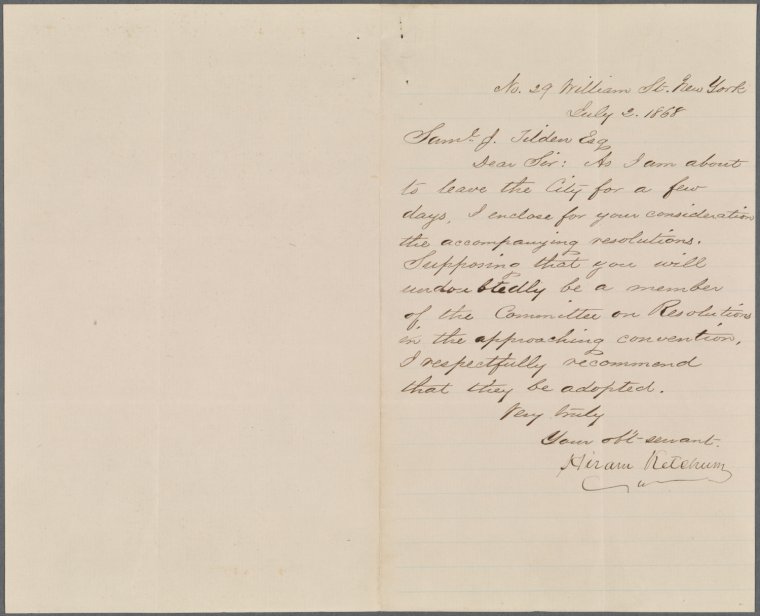 No. 29 William St. New York
July 2. 1868
Saml. J. Tilden Esq
Dear Sir: As I am about
to leave the City for a few
days, I enclose for your consideration
the accompanying resolutions.
Supposing that you will
undoubtedly be a member
of the Committee on Resolutions
in the approaching convention,
I respectfully recommend
that they be adopted.
Very truly
Your obt. servant.
Hiram Ketchum